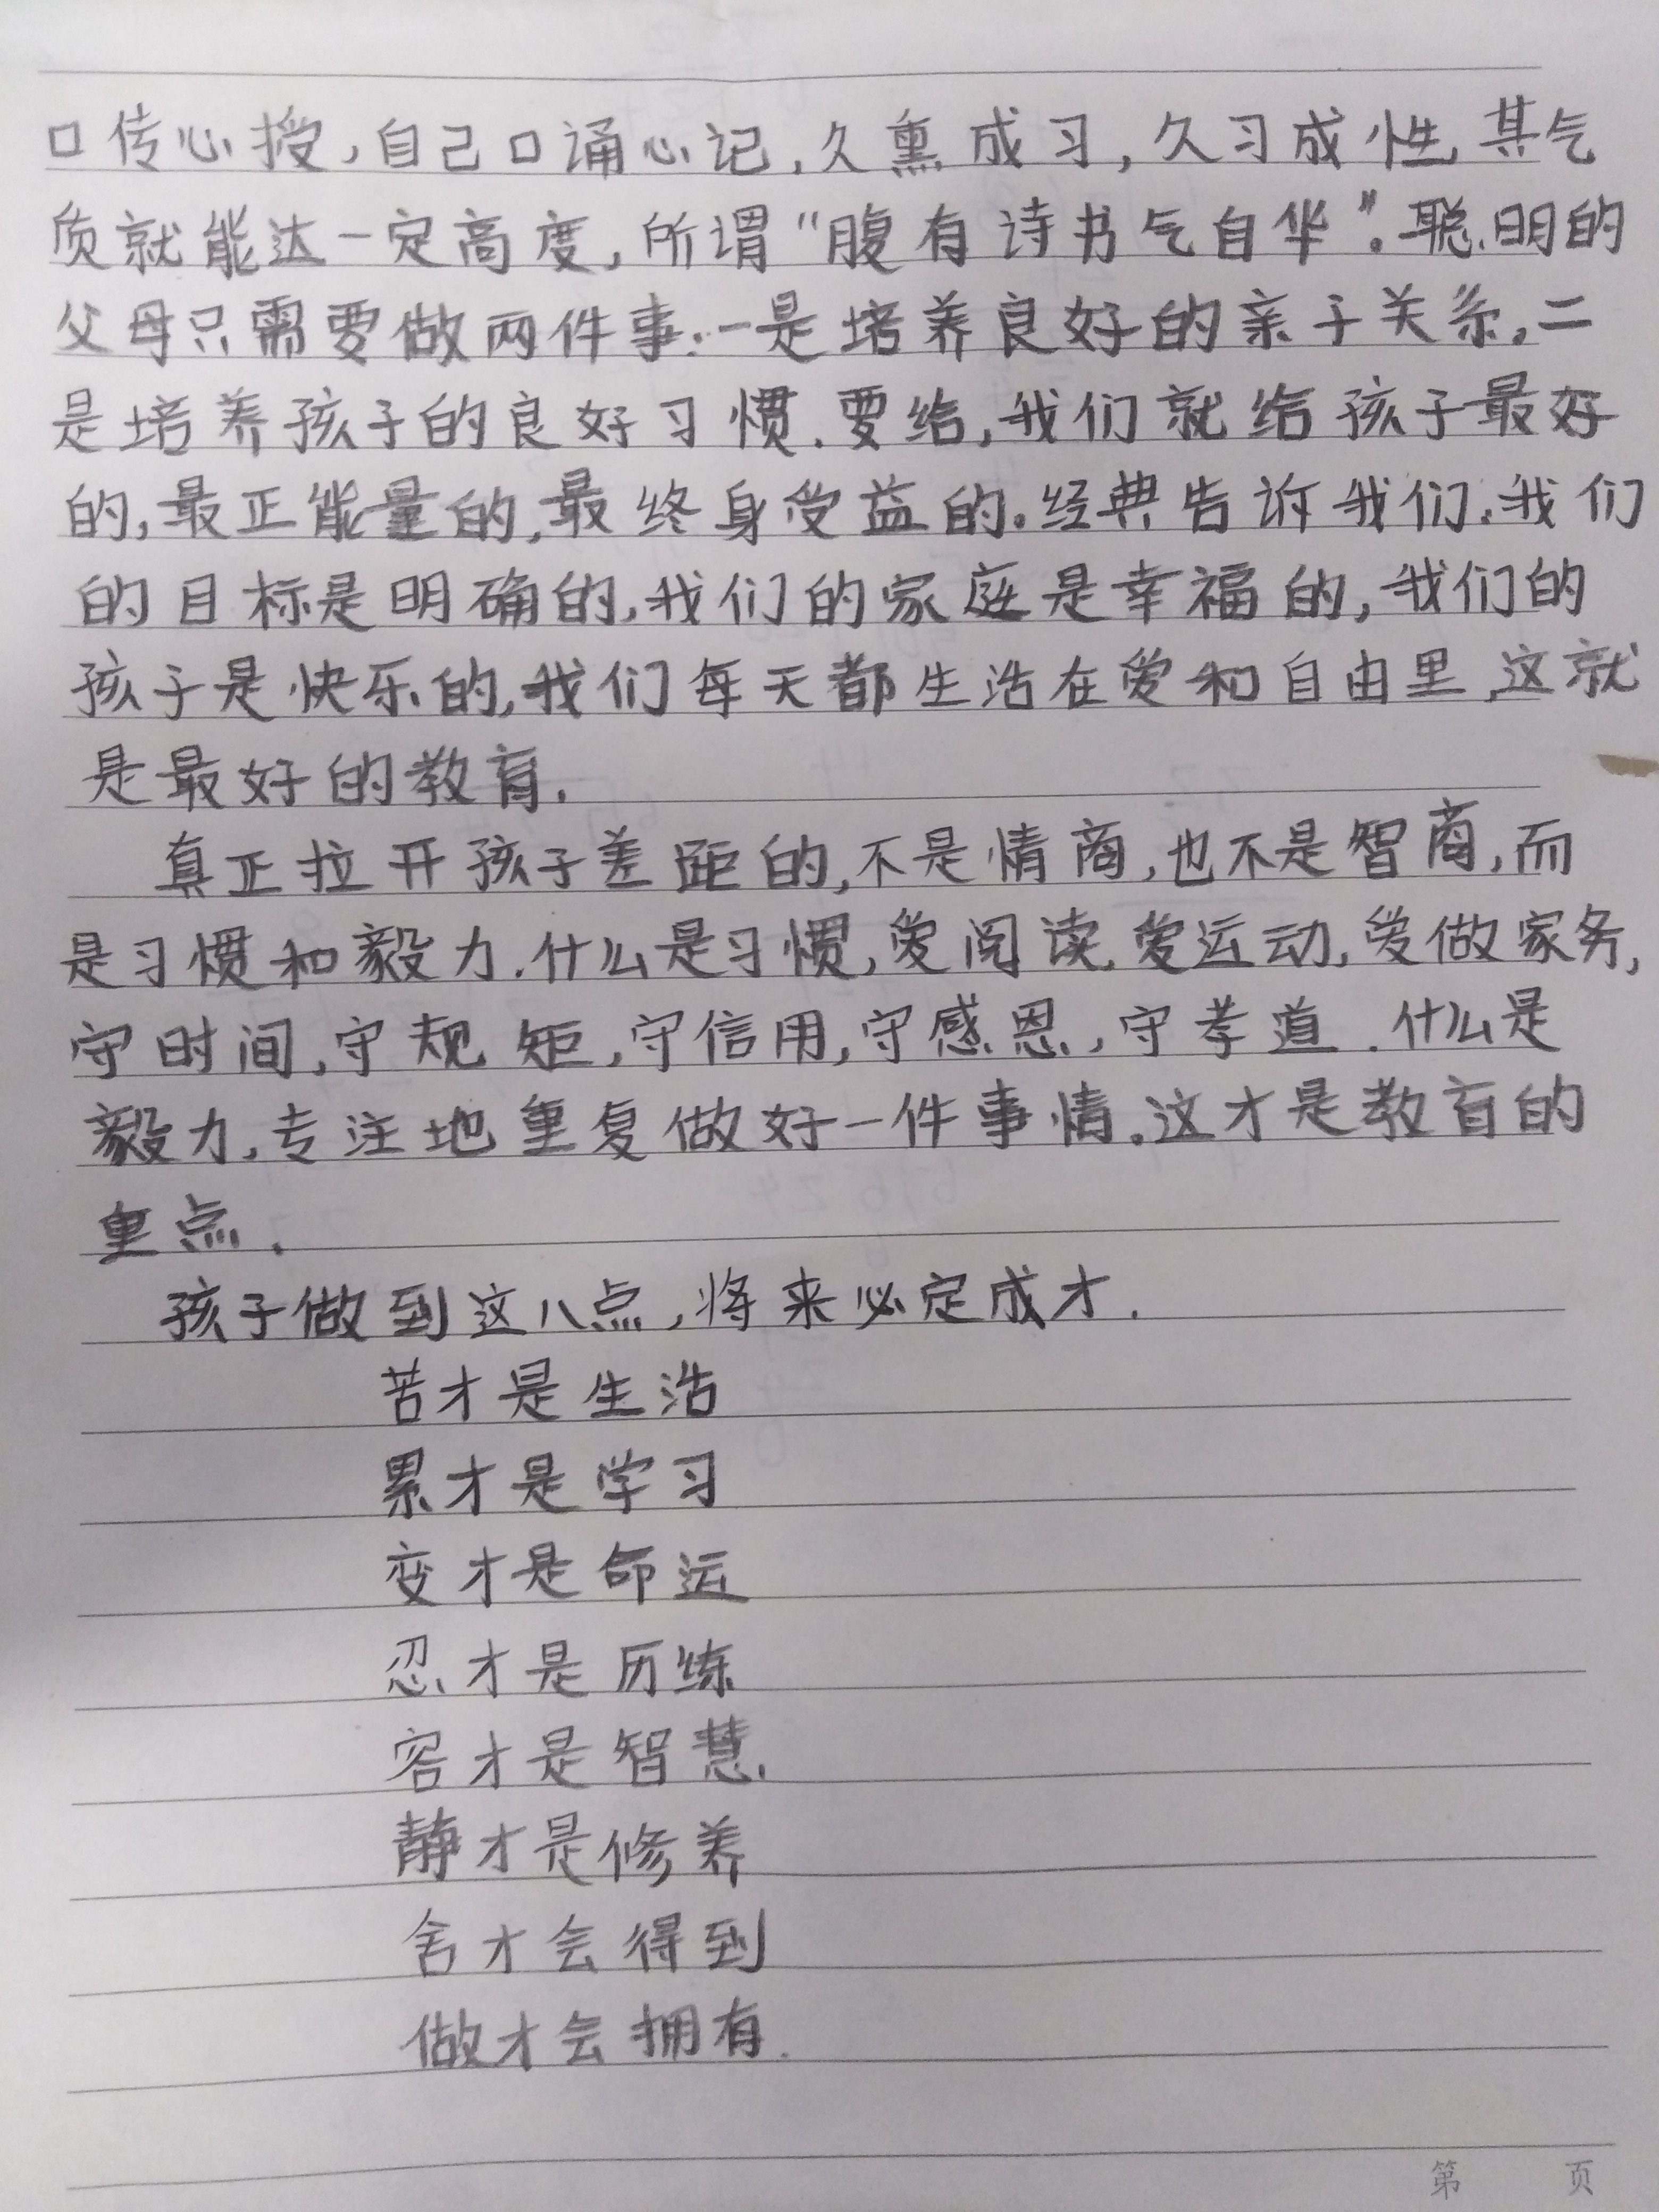 口传心授,自己口诵心记,久熏成习,久习成性,其气
质就能达一定高度,所谓“腹有诗书气自华”。聪明的
父母只需要做两件事:一是培养良好的亲子关系,二
是培养孩子的良好习惯.要给,我们就给孩子最好
的,最正能量的,最终身受益的。经典告诉我们:我们
的目标是明确的,我们的家庭是幸福的,我们的
孩子是快乐的,我们每天都生活在爱和自由里,这就
是最好的教育.
真正拉开孩子差距的,不是情商,也不是智商,而
是习惯和毅力.什么是习惯,爱阅读,爱运动,爱做家务,
守时间,守规矩,守信用,守感恩,守孝道.什么是
毅力,专注地重复做好一件事情。这才是教育的
重点.
孩子做到这八点,将来必定成才.
苦才是生活
累才是学习
变才是命运
忍才是历练
容才是智慧.
静才是修养
舍才会得到
做才会拥有.
第 页